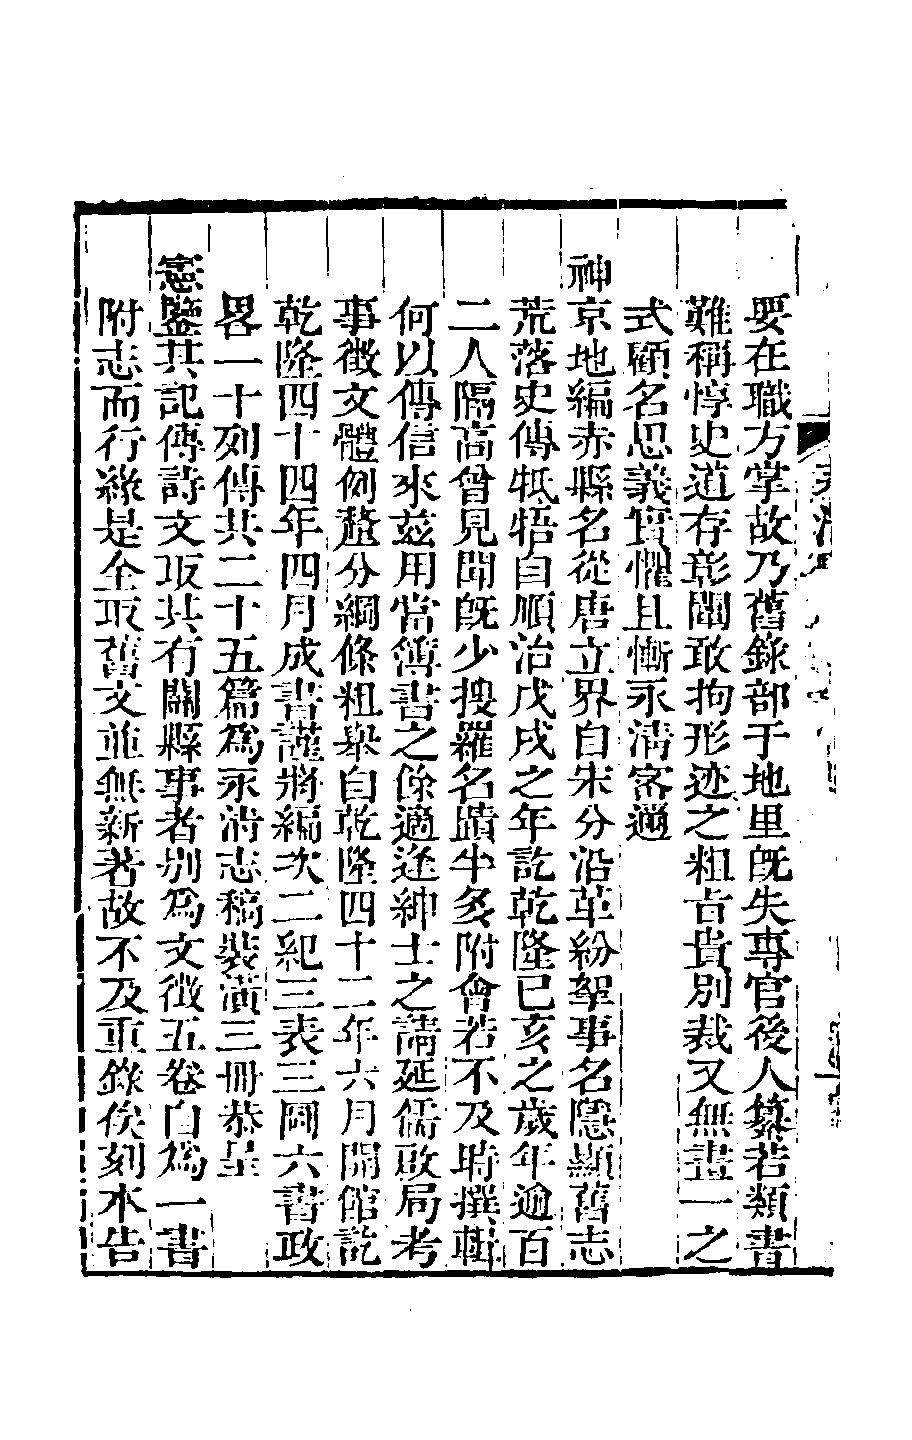 要在職方掌故乃舊錄部于地里旣失專官後人纂若類書
難稱惇史道存彰闡敢拘形迹之粗旨貴別裁又無畫一之
式顧名思義實懼且慚永清密邇
神京地編赤縣名從唐立界自宋分沿革紛挐事名隱顯舊志
荒落史傳牴牾自順治戊戌之年訖乾隆己亥之歲年逾百
二人隔高曾見聞旣少搜羅名蹟半多附會若不及時撰輯
何以傳信來茲用當簿書之餘適逢紳士之請延儒啟局考
事徵文體例釐分綱條粗舉自乾隆四十二年六月開館訖
乾隆四十四年四月成書謹將編次二紀三表三圖六書政
畧一十列傳共二十五篇爲永清志稿裝潢三冊恭呈
憲鑒其記傳詩文取其有關縣事者別爲文徵五卷自爲一書
附志而行緣是全取舊文並無新著故不及重錄俟刻本告